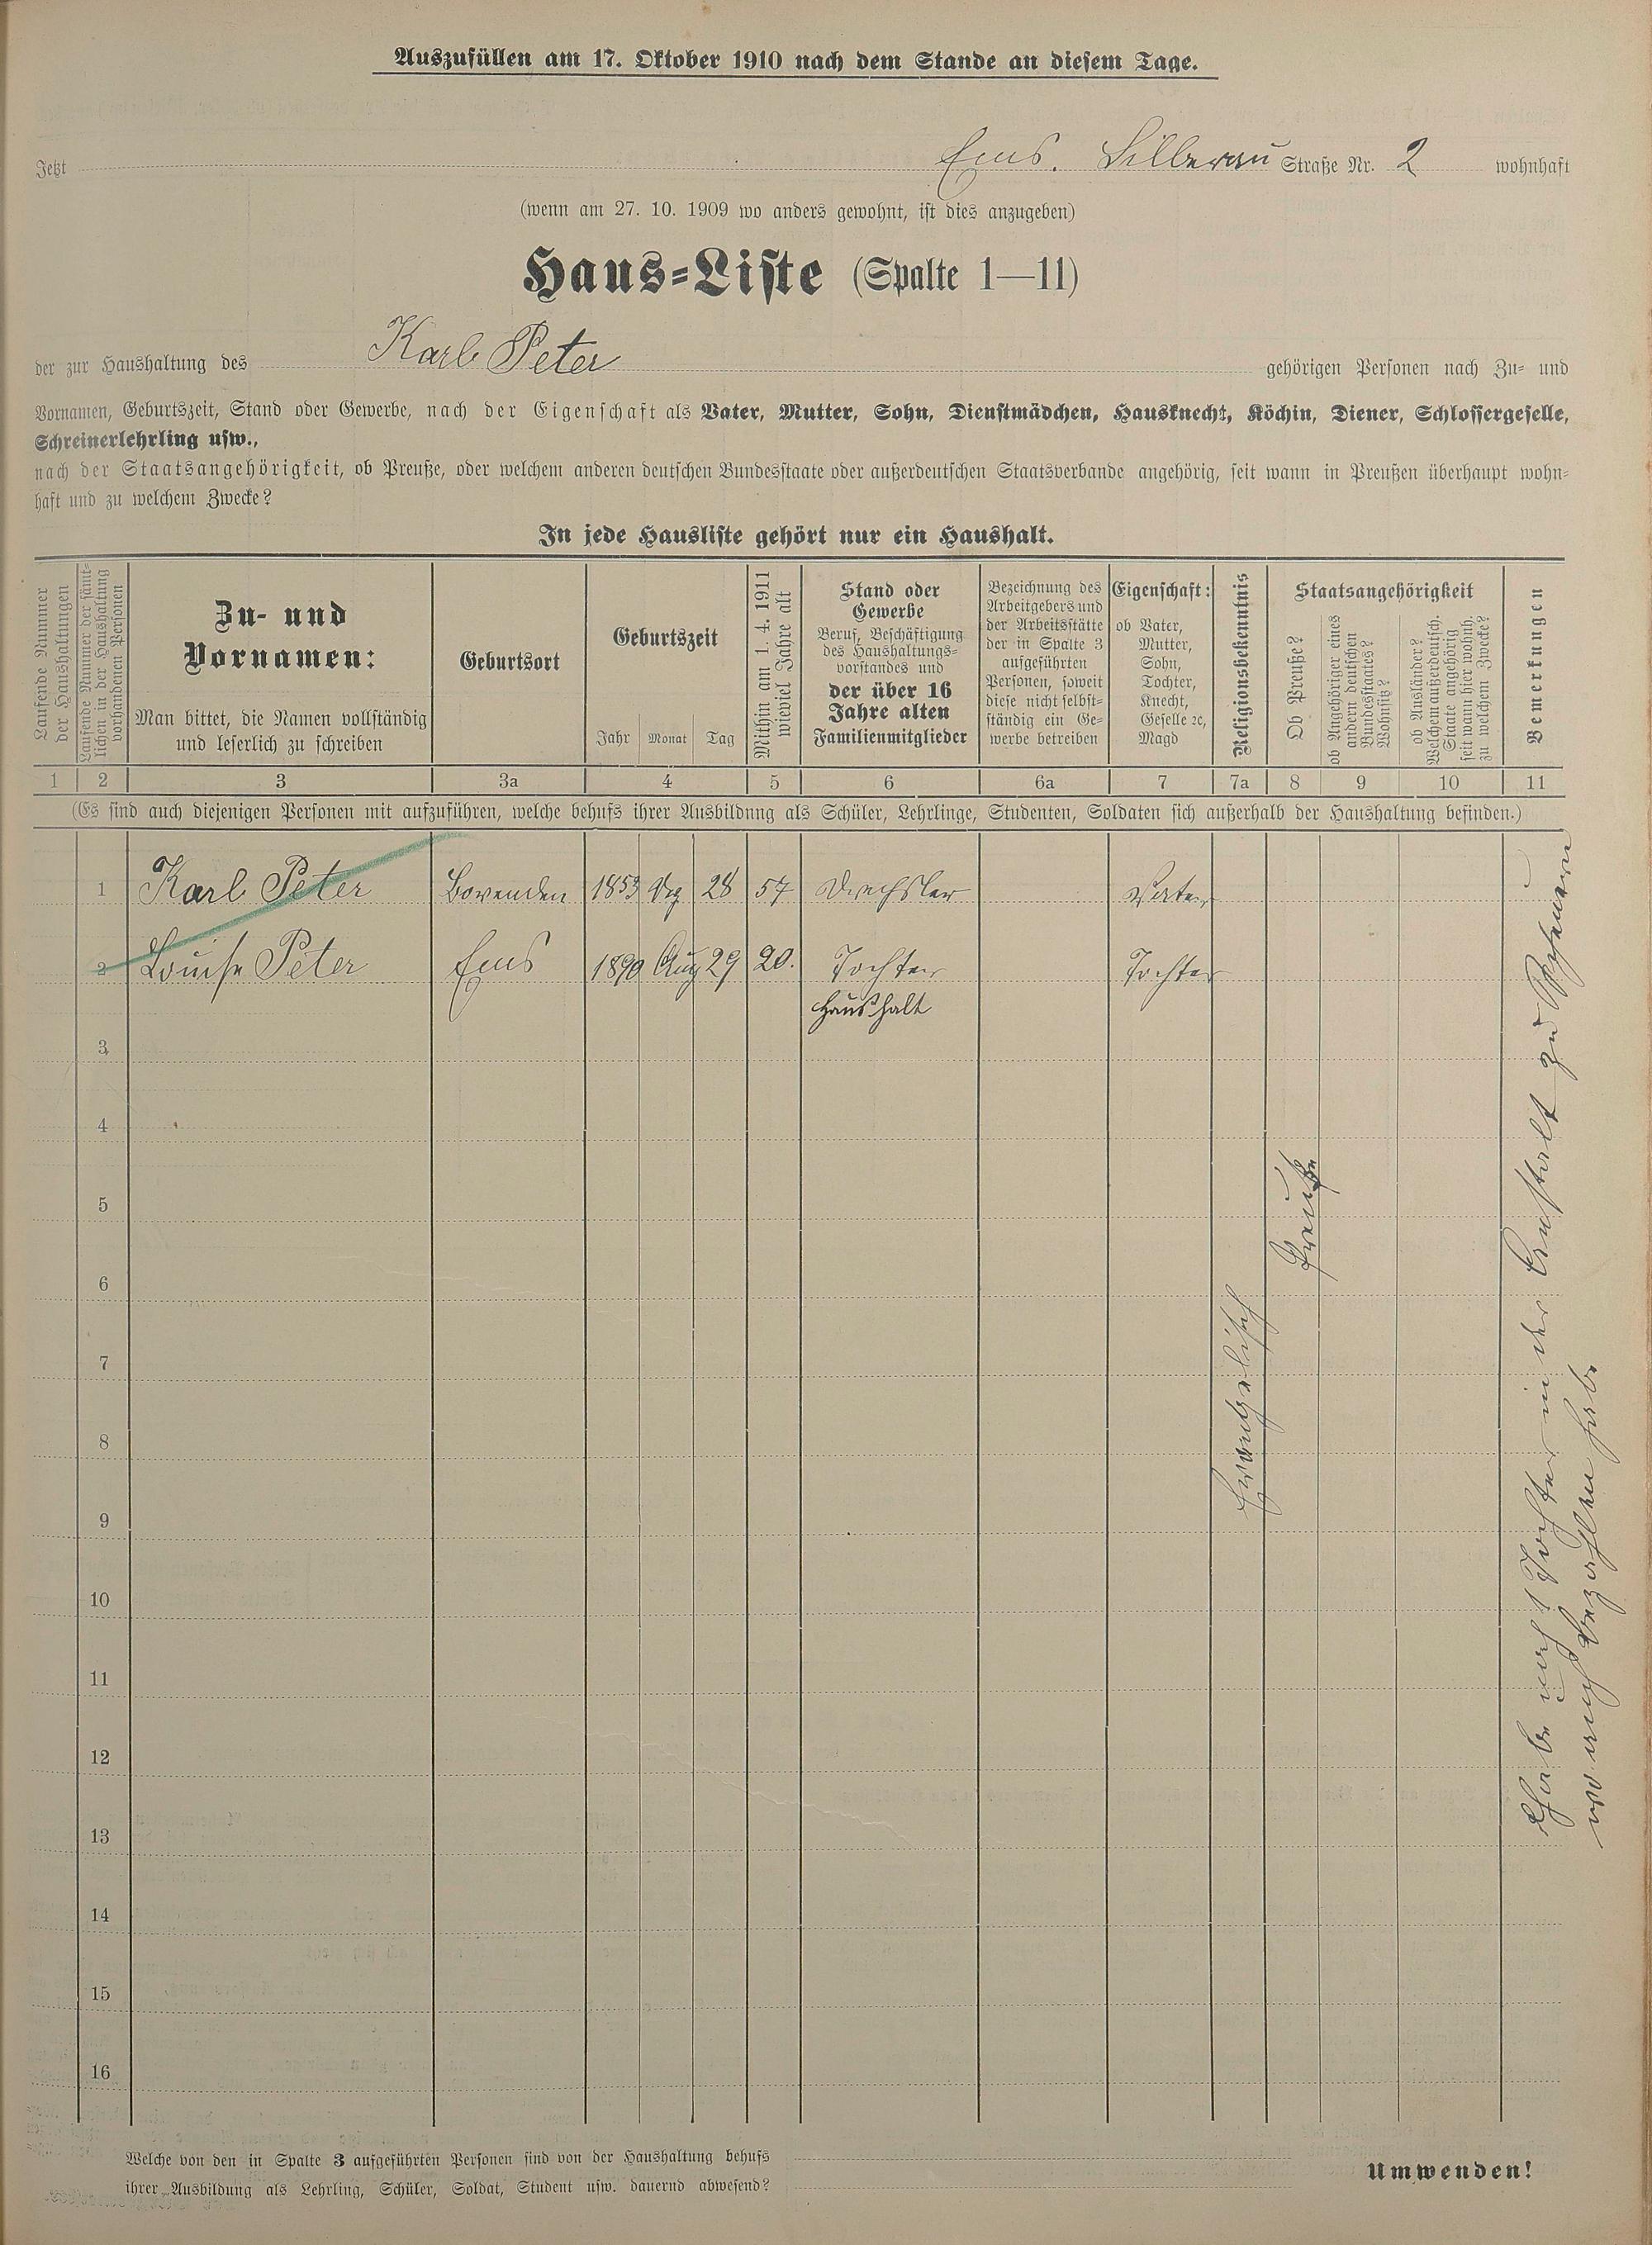 Auszufüllen am 17. Oktober 1910 nach dem Stande an diesem Tage.
Jetzt Ems. Silberau Straße Nr. 2 wohnhaft
(wenn am 27. 10. 1909 wo anders gewohnt, ist dies anzugeben)
Haus-Liste (Spalte 1—11)
der zur Haushaltung des Karl Peter gehörigen Personen nach Zu- und
Vornamen, Geburtszeit, Stand oder Gewerbe, nach der Eigenschaft als Vater, Mutter, Sohn, Dienstmädchen, Hausknecht, Köchin, Diener, Schlossergeselle,
Schreinerlehrling usw.,
nach der Staatsangehörigkeit, ob Preuße, oder welchem anderen deutschen Bundesstaate oder außerdeutschen Staatsverbande angehörig, seit wann in Preußen überhaupt wohn-
haft und zu welchem Zwecke?
In jede Hausliste gehört nur ein Haushalt.
Laufende Nummer
der Haushaltungen
Laufende Nummer der sämt-
lichen in der Haushaltung
vorhandenen Personen
Zu- und
Vornamen:
Man bittet, die Namen vollständig
und leserlich zu schreiben
Geburtsort
Geburtszeit
Jahr Monat Tag
Mithin am 1. 4. 1911
wieviel Jahre alt
Stand oder
Gewerbe
Beruf, Beschäftigung
des Haushaltungs-
vorstandes und
der über 16
Jahre alten
Familienmitglieder
Bezeichnung des
Arbeitgebers und
der Arbeitsstätte
der in Spalte 3
aufgeführten
Personen, soweit
diese nicht selbst-
ständig ein Ge-
werbe betreiben
Eigenschaft:
ob Vater,
Mutter,
Sohn,
Tochter,
Knecht,
Geselle ꝛc,
Magd
Religionsbekenntnis
Staatsangehörigkeit
Ob Preuße?
ob Angehöriger eines
andern deutschen
Bundesstaates?
Wohnsitz?
ob Ausländer?
Welchem außerdeutsch.
Staate angehörig
seit wann hier wohnh.
zu welchem Zwecke?
Bemerkungen
1 2 3 3a 4 5 6 6a 7 7a 8 9 10 11
(Es sind auch diejenigen Personen mit aufzuführen, welche behufs ihrer Ausbildung als Schüler, Lehrlinge, Studenten, Soldaten sich außerhalb der Haushaltung befinden.)
1 Karl Peter Bovenden 1853 Dez 28 57 Drechsler Vater
2 Louise Peter Ems 1890 Aug 29 20. Tochter Tochter
Haushalt
3
4
5
6
7
8
9
10
11
12
13
14
15
16
Evangelisch
Preuße
Habe noch 1 Tochter in der Anstalt zu Scheuern
wo auch bezahlen habe
Welche von den in Spalte 3 aufgeführten Personen sind von der Haushaltung behufs
ihrer Ausbildung als Lehrling, Schüler, Soldat, Student usw. dauernd abwesend?
Umwenden!